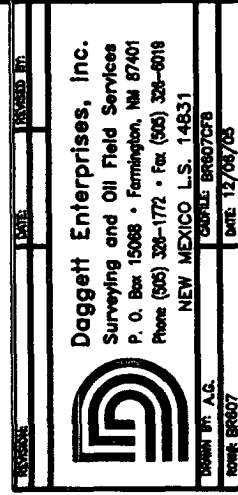 REVISION: DATE: REVISED BY:
Daggett Enterprises, Inc.
Surveying and Oil Field Services
P. O. Box 15068 • Farmington, NM 87401
Phone (505) 326-1772 • Fax (505) 326-6019
NEW MEXICO L.S. 14831
DRAWN BY: A.G. CADFILE: BR607CF8
ROW#: BR607 DATE: 12/06/05